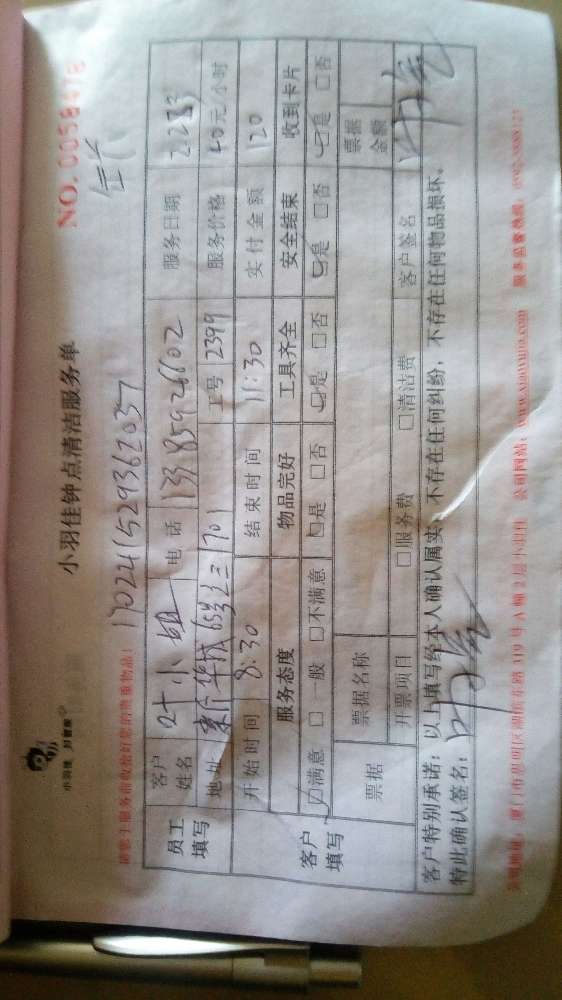 小羽佳 好管家
小羽佳钟点清洁服务单
NO. 0058478
请您于服务前收拾好您的贵重物品!
17022415529362037
员工填写
客户姓名 叶小姐 电话 13385924602 服务日期 2.283
地址 工号 2399 服务价格 40元/小时
开始时间 8:30 结束时间 11:30 实付金额 120
客户填写
服务态度 物品完好 工具齐全 安全结束 收到卡片
☑满意 □一般 □不满意 ☑是 □否 ☑是 □否 ☑是 □否 ☑是 □否
票据 票据名称 票据金额
开票项目 □服务费 □清洁费 客户签名
客户特别承诺:以上填写经本人确认属实,不存在任何纠纷,不存在任何物品损坏。
特此确认签名:
厦门市思明区湖滨东路 319 号 A 幢 2 层小羽佳 公司网站:www.xiaoyujia.com 服务监督热线: